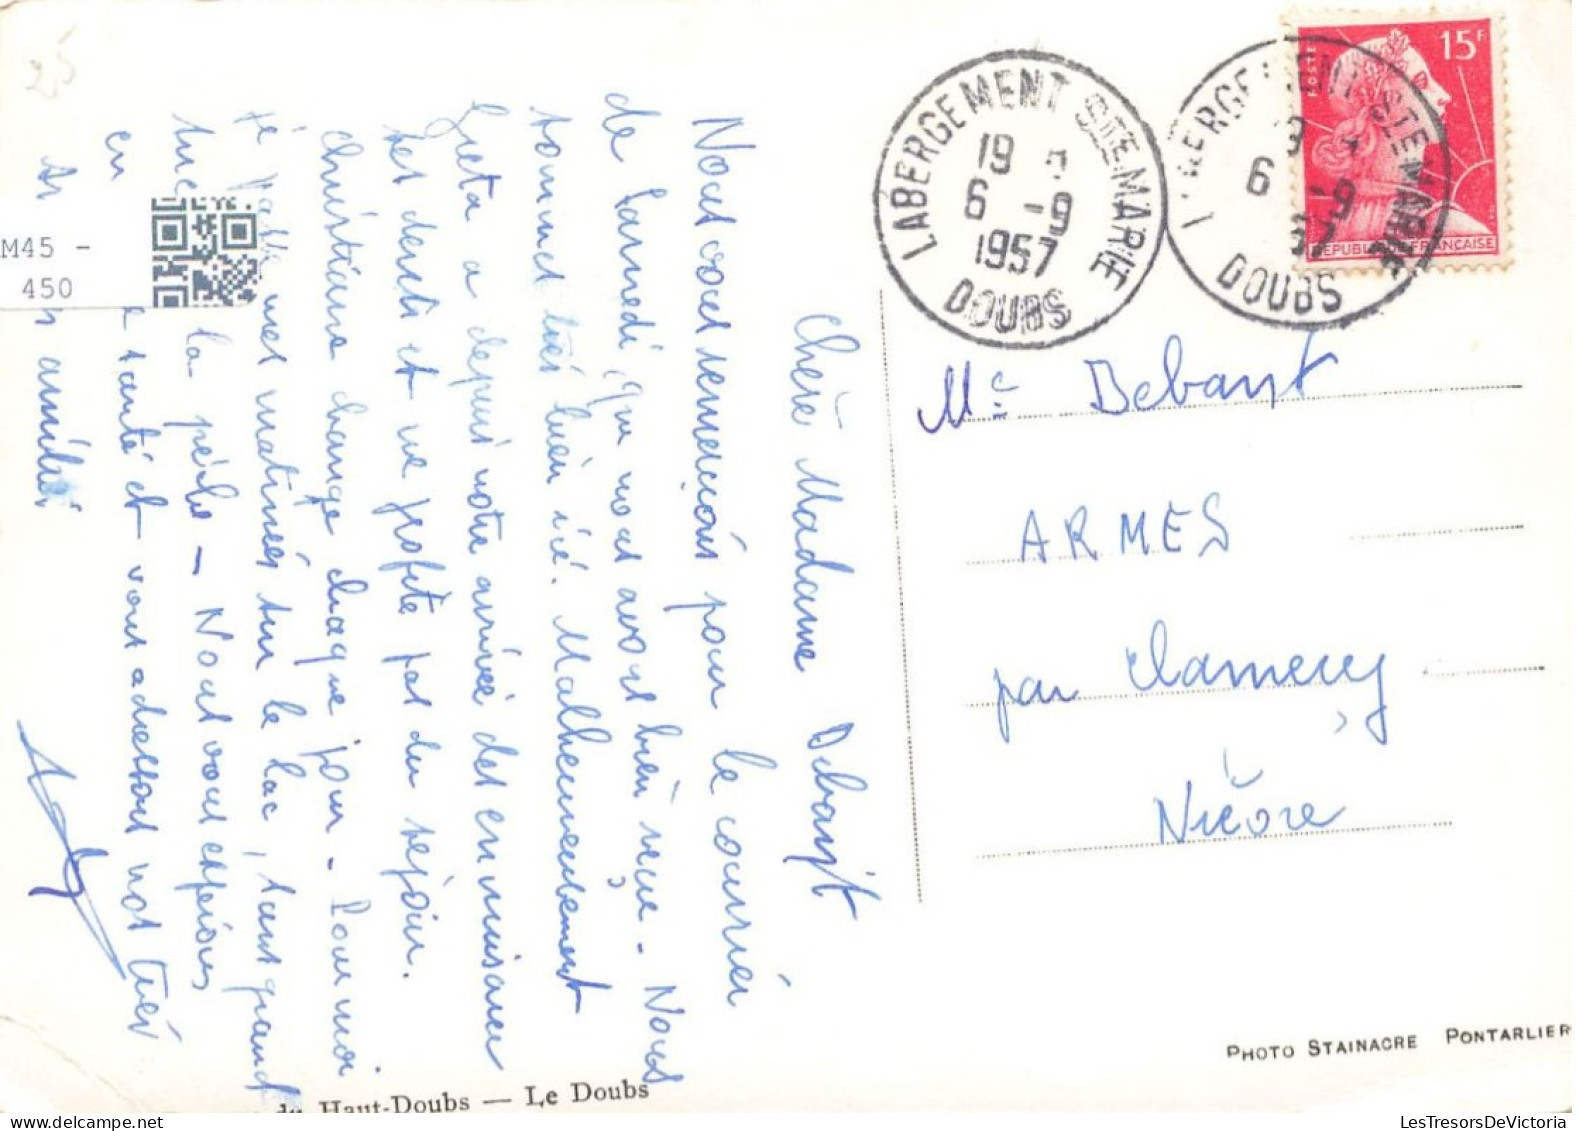 25
M45 -
450
15F
POSTES
REPUBLIQUE FRANCAISE
LABERGEMENT STE MARIE
19
6 -9
1957
DOUBS
LABERGEMENT STE MARIE
19
6 -9
57
DOUBS
Mᵉ Debant
ARMES
par Clamecy
Nièvre
Chère Madame Debant
Nous vous remercions pour le courrier
de samedi, que nous avons bien reçu - Nous
sommes très bien ici. Malheureusement
a depuis notre arrivée des ennuis avec
ses dents et ne profite pas du séjour.
Christiane change chaque jour - Pour moi
je mes matinées sur le lac, sans grand
la pêche - Nous vous espérons
en santé et vous adressons nos très
amitiés
Haut-Doubs — Le Doubs
PHOTO STAINACRE PONTARLIER
LesTresorsDeVictoria.com